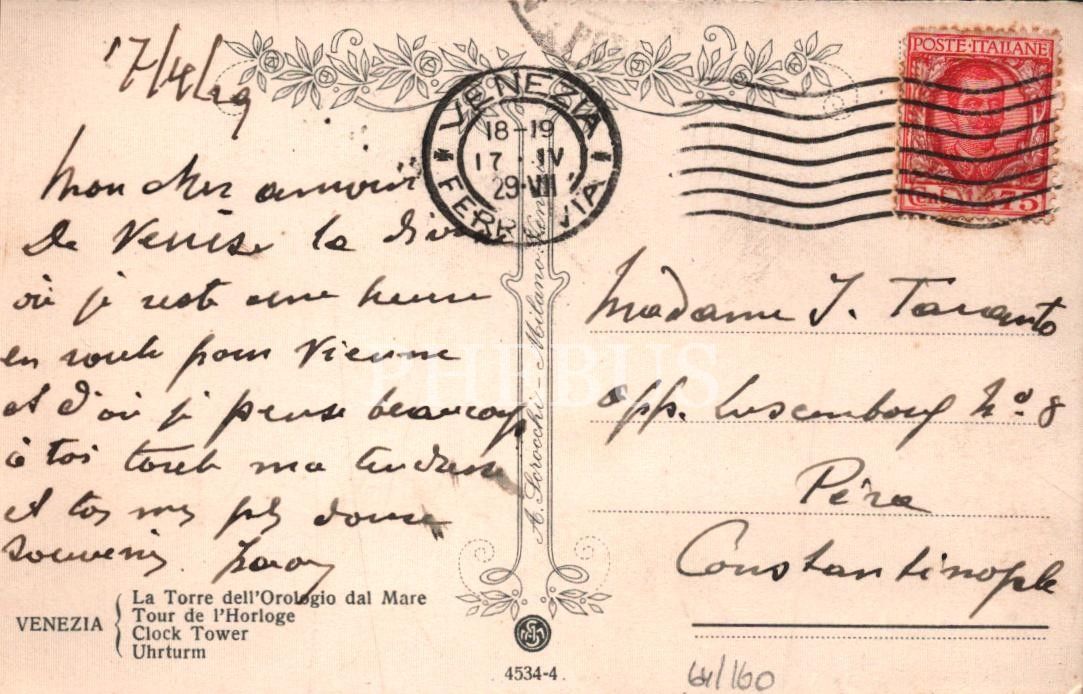 17/4/29
Mon cher amour
De Venise la divine
où je reste une heure
en route pour Vienne
et d'où je pense beaucoup
à toi toute ma tendresse
et tos mes pls doux
souvenirs
VENEZIA
La Torre dell'Orologio dal Mare
Tour de l'Horloge
Clock Tower
Uhrturm
VENEZIA
18-19
17 · IV
29·VII
FERROVIA
A. Scrocchi - Milano
4534-4
POSTE·ITALIANE
Cent. 75
Madame J. Taranto
app. Luxembourg No 8
Péra
Constantinople
64/160
PHEBUS